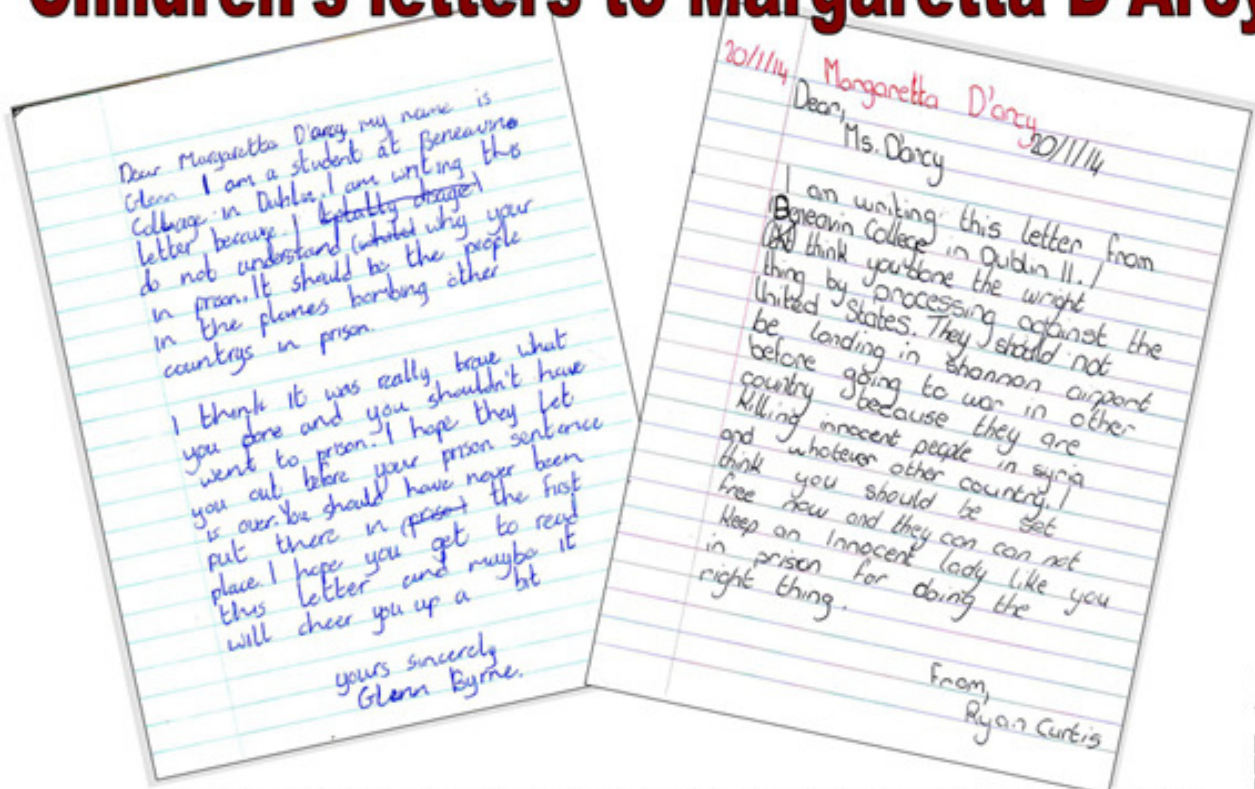 Children's letters to Margaretta D'Arcy
Dear Margaretta D'arcy my name is
Glenn I am a student at Beneavino
Collage in Dublin. I am writing this
letter because I (totally disage)
do not understand (whited why your
in prison. It should be the people
in the planes bombing other
countrys in prison.
I think it was really brave what
you done and you shouldn't have
went to prison. I hope they let
you out before your prison sentence
is over. You should have never been
put there in (prison) the first
place. I hope you get to read
this letter and maybe it
will cheer you up a bit
yours sincerely
Glenn Byrne.
20/1/14 Margaretta D'arcy
Dear, 20/1/14
Ms. Darcy
I am writing this letter from
Beneavin College in Dublin 11. I
think you done the wright
thing by processing against the
United States. They should not
be landing in Shannon airport
before going to war in other
country because they are
killing innocent people in syria
and whatever other country. I
think you should be set
free now and they can can not
keep an innocent lady like you
in prison for doing the
right thing.
From,
Ryan Curtis